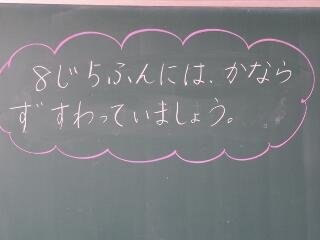 8じ5ふんには、かなら
ずすわっていましょう。